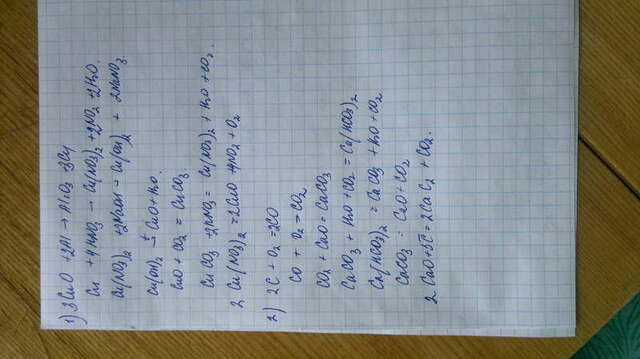 1) 3CuO + 2Al → Al2O3 + 3Cu
Cu + 4HNO3 → Cu(NO3)2 + 2NO2 + 2H2O.
Cu(NO3)2 + 2NaOH → Cu(OH)2 + 2NaNO3.
Cu(OH)2 t→ CuO + H2O.
CuO + CO2 = CuCO3
CuCO3 + 2HNO3 = Cu(NO3)2 + H2O + CO2.
2 Cu(NO3)2 = 2CuO + 4NO2 + O2
2) 2C + O2 = 2CO
CO + O2 → CO2
CO2 + CaO = CaCO3
CaCO3 + H2O + CO2 = Ca(HCO3)2
Ca(HCO3)2 = CaCO3 + H2O + CO2
CaCO3 = CaO + CO2
2 CaO + 5C = 2CaC2 + CO2.